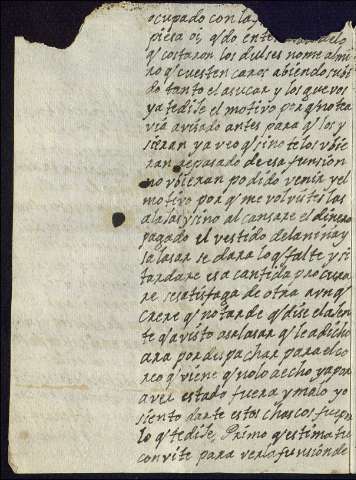 ocupado con la
piesa oi, qdo ente delo
q costaron los dulses nome almi
ro q cuesten caros abiendo subi
do tanto el asucar y los guevos
ya tedije el motivo por q no te a
viá avisado antes para q los y
sieran ya veo q sino telos ubie
ran repasado de esa funsion
no ubieran podido venir yel
motivo por q me volvistes las
alajas y sino alcansare el dinero
pagado el vestido dela niña y
salasar se dara lo q falte y si
tardare esa cantida procura
re se satisfaga de otra aunq
crere q no tarde q dise el aben
te q a visto a salasar q le a dicho
ara por despachar para el co
reo q viene q no lo a echo ya por
aver estado fuera y malo yo
siento darte estos chascos fue por
lo q te dije, Primo q estima tu
convite para ver la funsion de